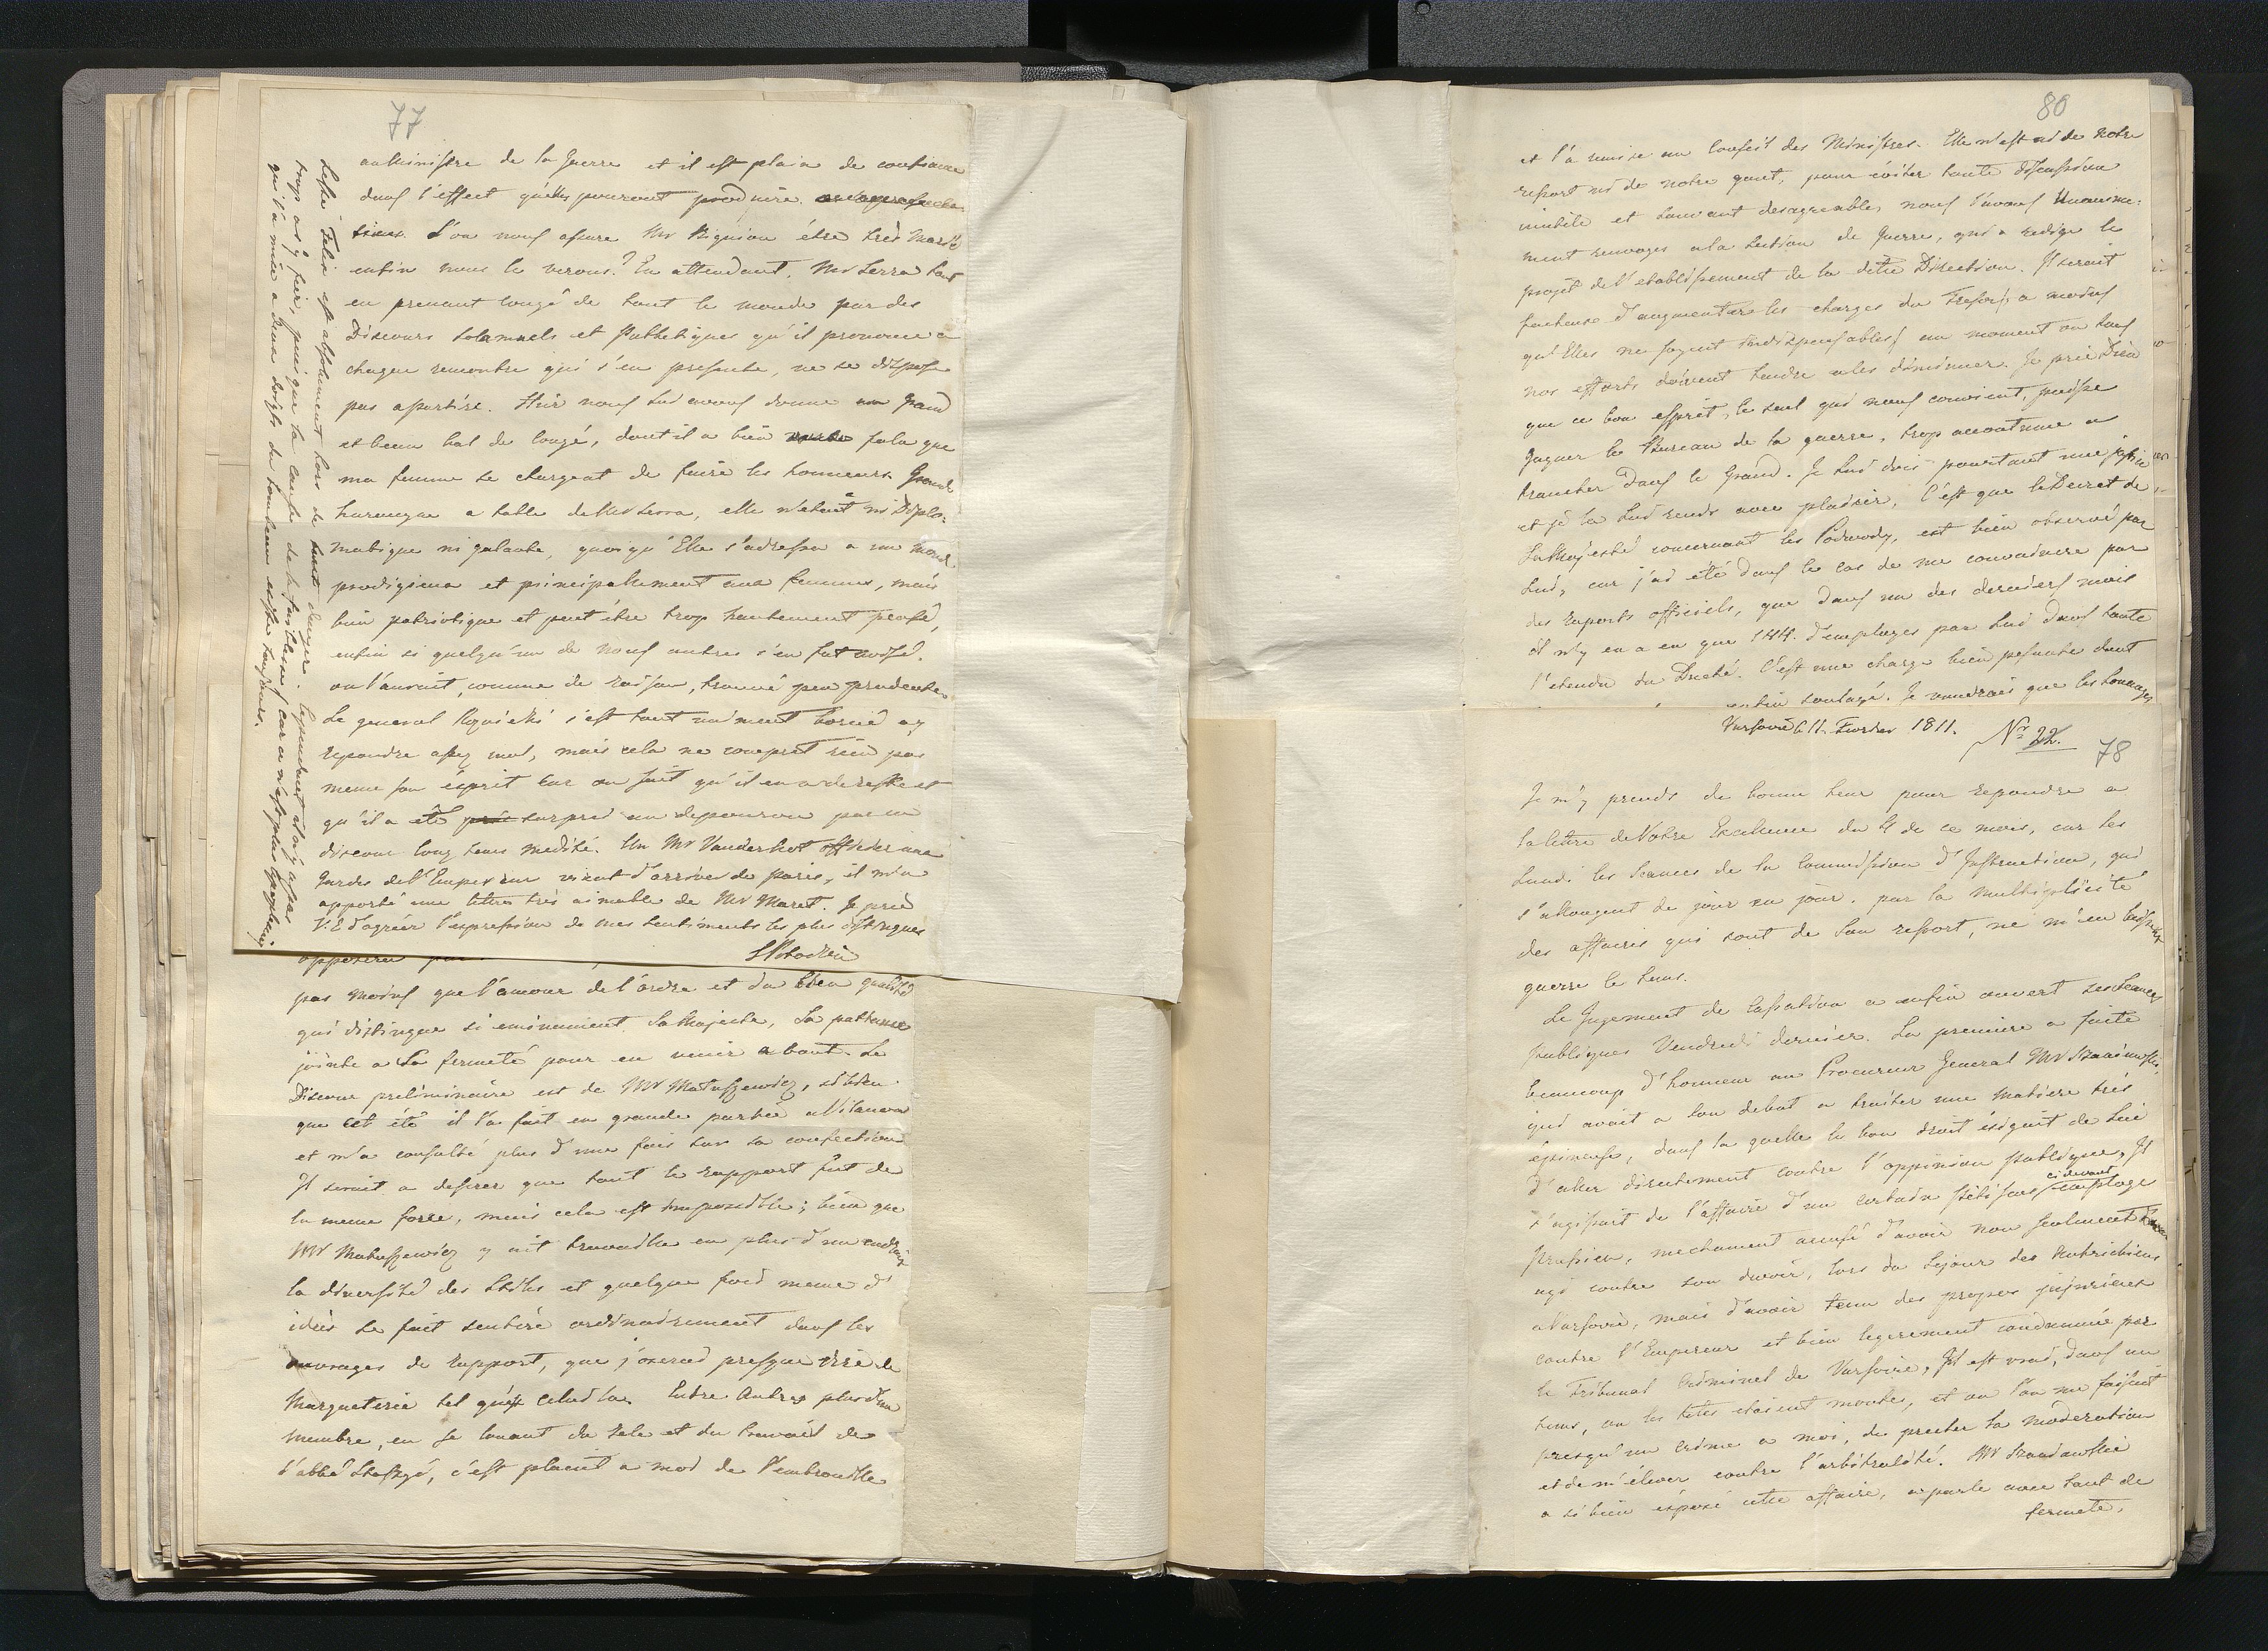 77
au Ministre de la Guerre et il est plain de confiance
dans l'effect qu'elles pouront prod uire.
L'on nous assure Mr Bignion être tres
enfin nous le verons? En attendant, Mr Serra tout
en prenant congé de tout le monde par des
Discours solamnels et Pathetiques qu'il prononce a
chaque remontre qui s'en presente, ne se dispose
pas a partire. Hier nous lui avons donne un grand
et beau bal de congé, dont il a bien falu que
ma femme se chargeat de faire les honneurs. Grande
harangue a table de Mr Serra, elle n'etait ni Diplo-
matique ni galante, quoiqu'Elle s'adressa a un monde
prodigieux et principalement aux femmes, mais
bien patriotique et peut être trop hautement pensé,
enfin si quelqu'un de nous autres s'en fut avisé,
on l'aurait, comme de raison, trouvé peu prudente.
Le general s'est tout uniment borné a y
repondre assez mal, mais cela ne compromet rien pas
meme son esprit car on sait qu'il en a de reste et
qu'il a été surpris au depourvu par un
discour long tems medité. Un Mr Vanderhot officier aux
Gardes de l'Empereur vient d'arriver de paris, il m'a
apporté une lettre très aimable de Mr Maret. Je prie
V: E d'agréer l'expression de mes sentiments les plus distingues
SPotocki
Lessé Felix est absolument hors de danger. Cependant il n'y a pas
trop as'y fier, puisque la cause de la faiblesse/ car ce n'est plus
qui l'a mise a deux doigts du tombeau existe toujours.
pas moins que l'amour de l'ordre et du bien qualité
qui distingue si eminement, Sa Majeste, Sa patience
jointe a sa fermeté pour en venir a bout. Le
Discour preliminaire est de Mr Matuszewicz,
que cet été il l'a fait en grande partie a Vilanow
et m'a consulté plus d'une fois sur sa confection
Il serait a desirer que tout le rapport fut de
la meme force, mais cela est impossible; bien que
Mr Matuszewicz y ait travaillé en plus d'un endroit
la diversité des Stiles et quelque fois meme d'
idées se fait sentire ordinairement dans les
ouvrages de rapport, que j'oserai presque dire de
Marqueterie tel qu'est celui la. Entre Autres plus d'un
membre, en se louant du zele et du travail de
l'abbé Staszyc, s'est plaint a moi de l'embrouille
80
et l'a remise au Conseil des Ministres. Elle n'est ni de notre
ressort ni de notre gout, pour éviter toute discussion
inutile et souvent desagreable, nous l'avons Unanime-
ment renvoyes a la Section de Guerre, qui a redige le
projet de l'etablissement de la dite Direction. Il serait
facheux d'augmenter les charges du Tresor/ a moins
qu'Elles ne soyent indispensables/ au moment ou tous
nos efforts doivent tendre a les diminuer. Je prie Dieu
que ce bon esprit, le seul qui nous convient, puisse
gagner le Bureau de la guerre, trop accoutume a
trancher dans le Grand. Je lui dois pourtant une justice
et je la lui rends avec plaisir, C'est que le Decret de
Sa Majesté concernant les Podwody, est bien observé par
lui, car j'ai été dans le cas de me convaincre par
des raports officiels, que dans un des derniers mois
il n'y en a eu que 144. d'employes par lui dans toute
l'etendu du Duché. C'est une charge bien pesante dont
enfin soulagé. Je voudrais que les
Varsovie le 11. Fevrier 1811.
Nr 22.
78
Je m'y prends de bonne heur pour repondre a
la lettre de Votre Excelence du 4 de ce mois, car les
Lundi les Seances de la Commission d'Instruction, qui
s'allongent de jour en jour, par la multiplicité
des affaires qui sont de son ressort, ne m'en laissent
guerre le tems.
Le Jugement de Cassation a enfin ouvert ses Seances
publiques Vendredi dernier. La premiere a faite
beaucoup d'honneur au Procureur General Mr
qui avait a son debut a traiter une matiere très
épineuse, dans la quelle le bon droit éxigait de lui
d'aller directement contre l'oppinion publique, Il
s'agissait de l'affaire d'un certain ci devant employe
Prussien, mechament accusé d'avoir non seulement
agi contre son devoir, lors du Sejour des Autrichiens
a Varsovie, mais d'avoir tenu des propos injurieux
contre l'Empereur et bien legerement condamné par
le Tribunal Criminel de Varsovie, Il est vrai, dans un
tems, ou les têtes etaient montes, et ou l'on me faisait
presqu'un crime a moi, de precher la moderation
et de m'élever contre l'arbitralité. Mr
a si bien exposé cette affaire, a parle avec tant de
fermeté,